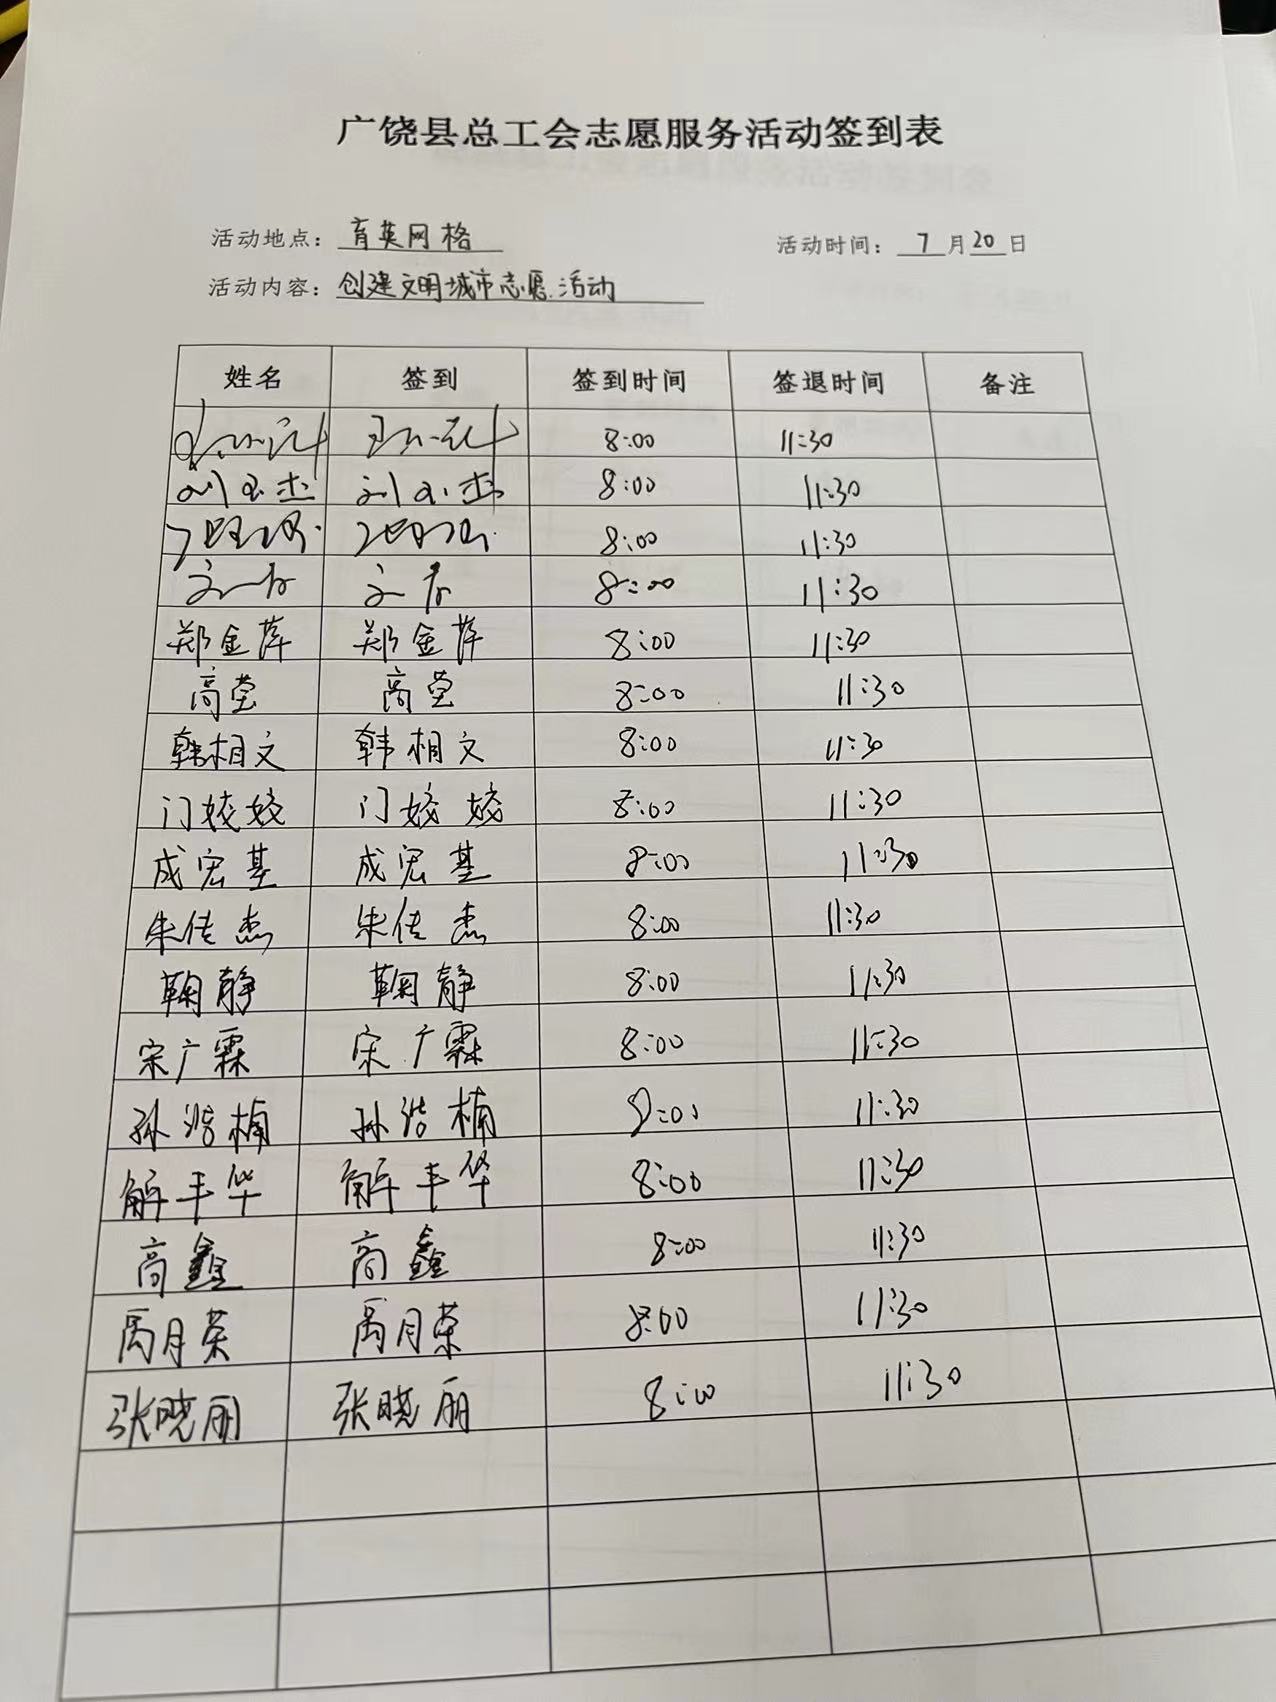 广饶县总工会志愿服务活动签到表
活动地点：育英网格 活动时间：7月20日
活动内容：创建文明城市志愿活动
姓名 签到 签到时间 签退时间 备注
8:00 11:30
刘玉杰 刘玉杰 8:00 11:30
8:00 11:30
8:00 11:30
郑金萍 郑金萍 8:00 11:30
高莹 高莹 8:00 11:30
韩相文 韩相文 8:00 11:30
门姣姣 门姣姣 8:00 11:30
成宏基 成宏基 8:00 11:30
朱传杰 朱传杰 8:00 11:30
鞠静 鞠静 8:00 11:30
宋广霖 宋广霖 8:00 11:30
孙浩楠 孙浩楠 8:00 11:30
解丰华 解丰华 8:00 11:30
高鑫 高鑫 8:00 11:30
禹月荣 禹月荣 8:00 11:30
张晓丽 张晓丽 8:00 11:30